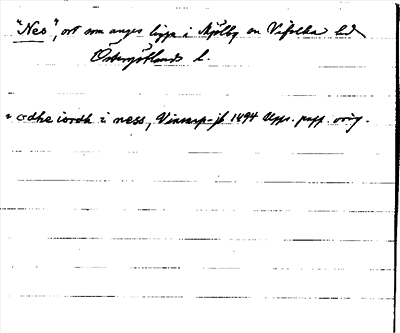 "Nes", ort som anges ligga i Mjölby sn Vifolka hd
Östergötlands l.
ödhe iordh i ness, Vinnarp-jb 1494 Upps. papp. orig.